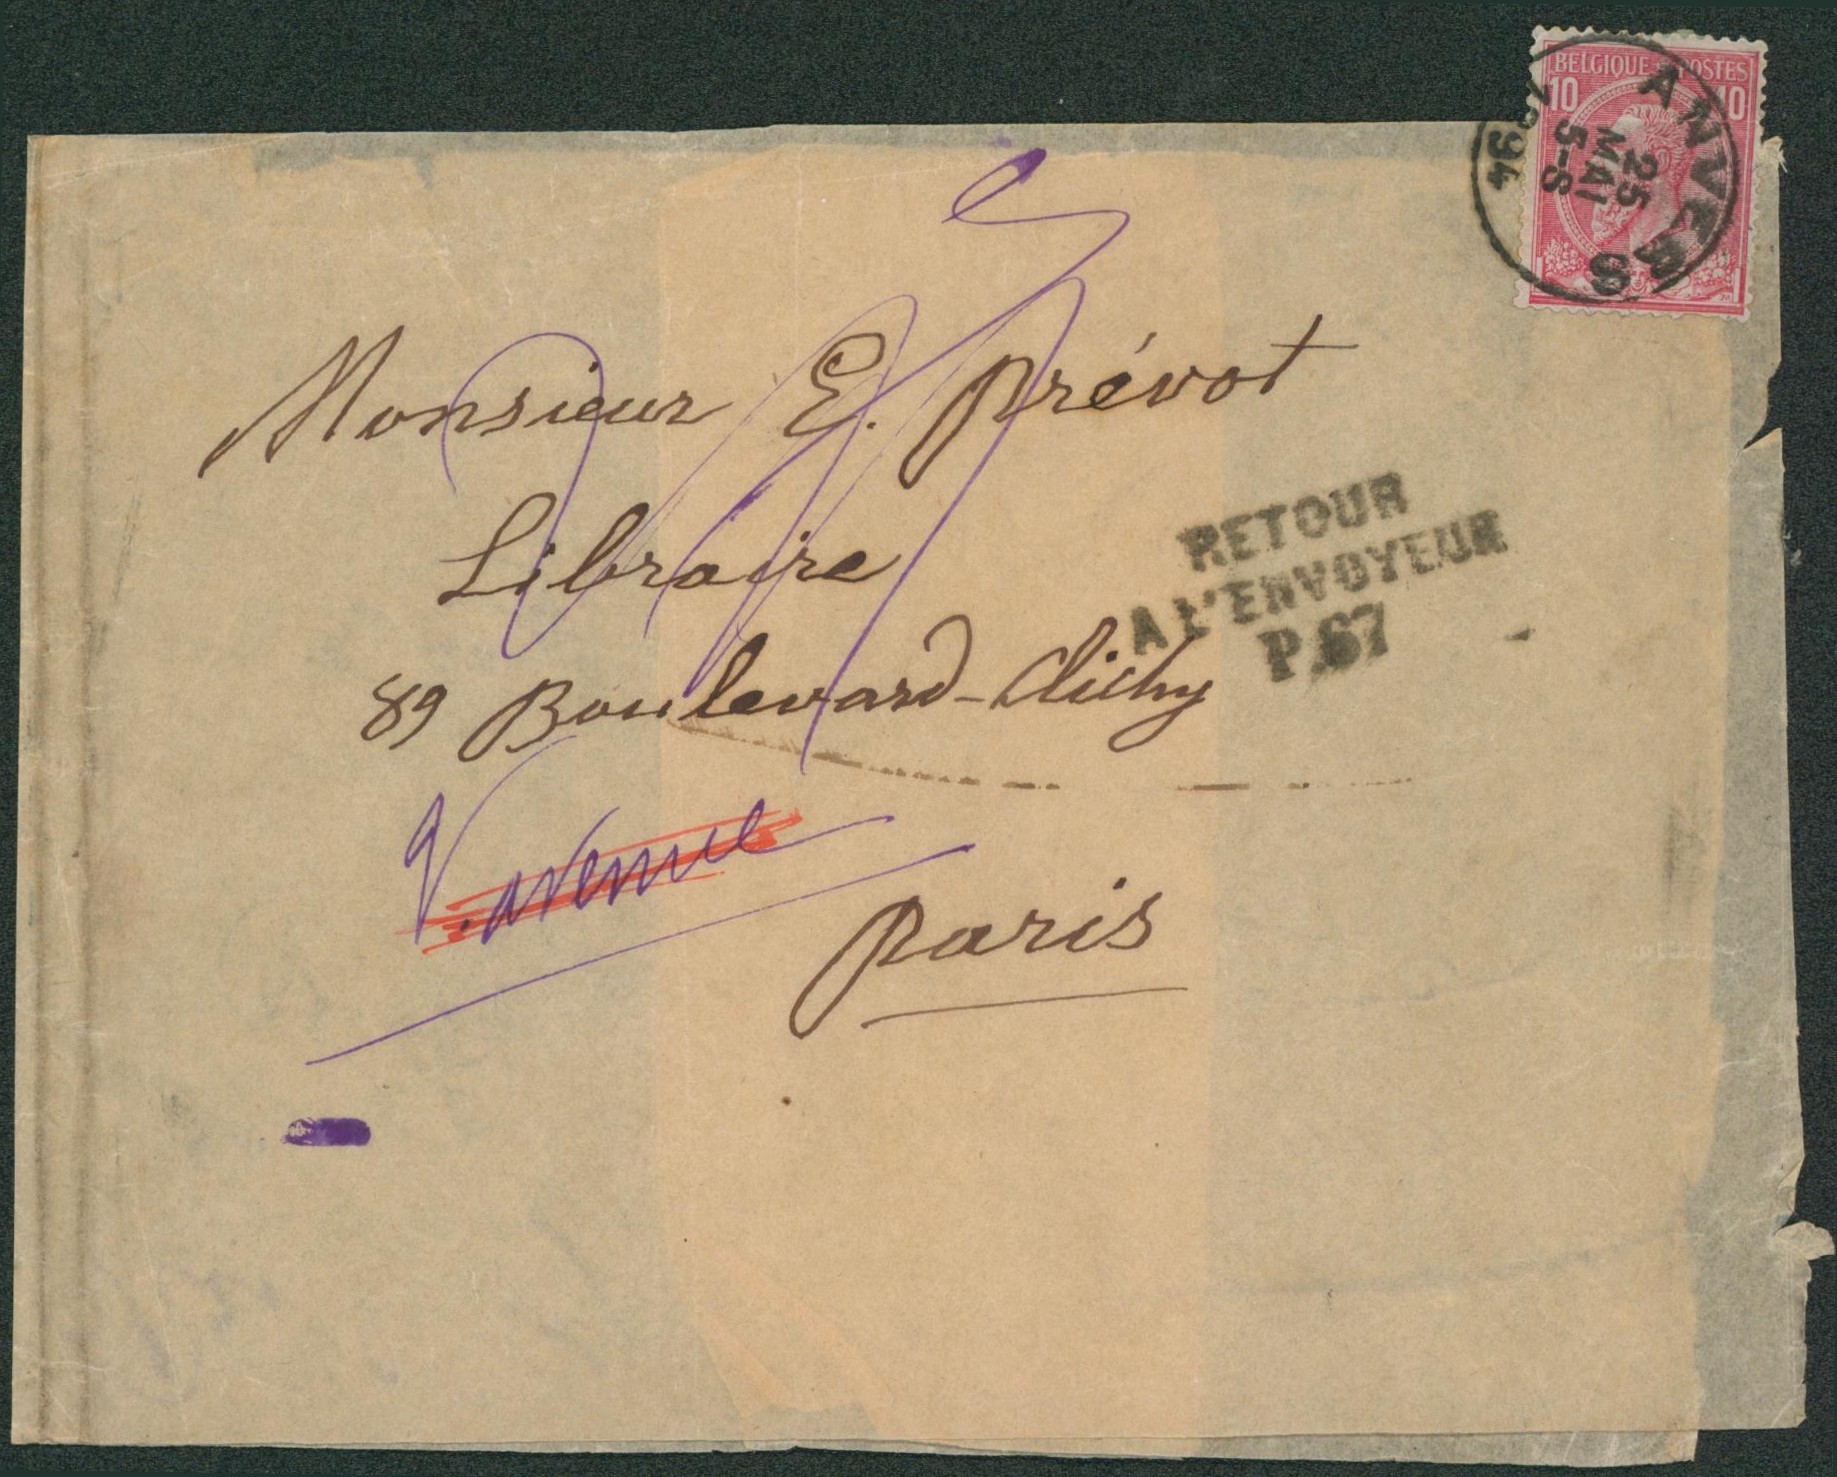 BELGIQUE POSTES
10 10
ANVERS
25
MAI
5-S
1894
Monsieur E. Prévot
Libraire
89 Boulevard-Clichy
Paris
RETOUR
A L'ENVOYEUR
P.67